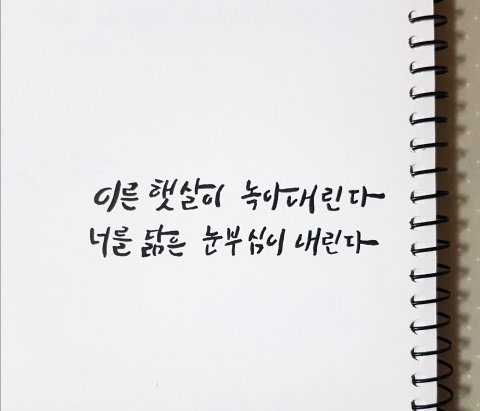 이른 햇살이 녹아내린다
너를 닮은 눈부심이 내린다